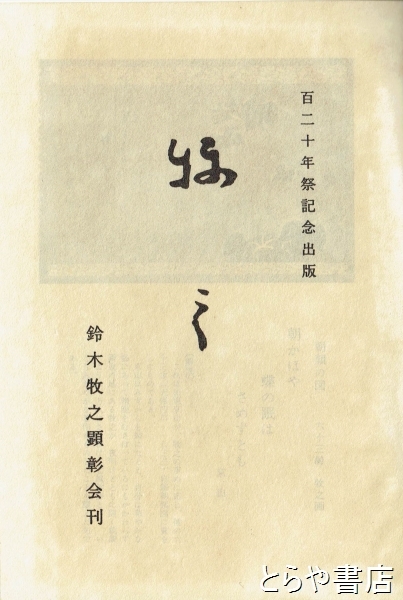 百二十年祭記念出版
牧之
鈴木牧之顕彰会刊
とらや書店